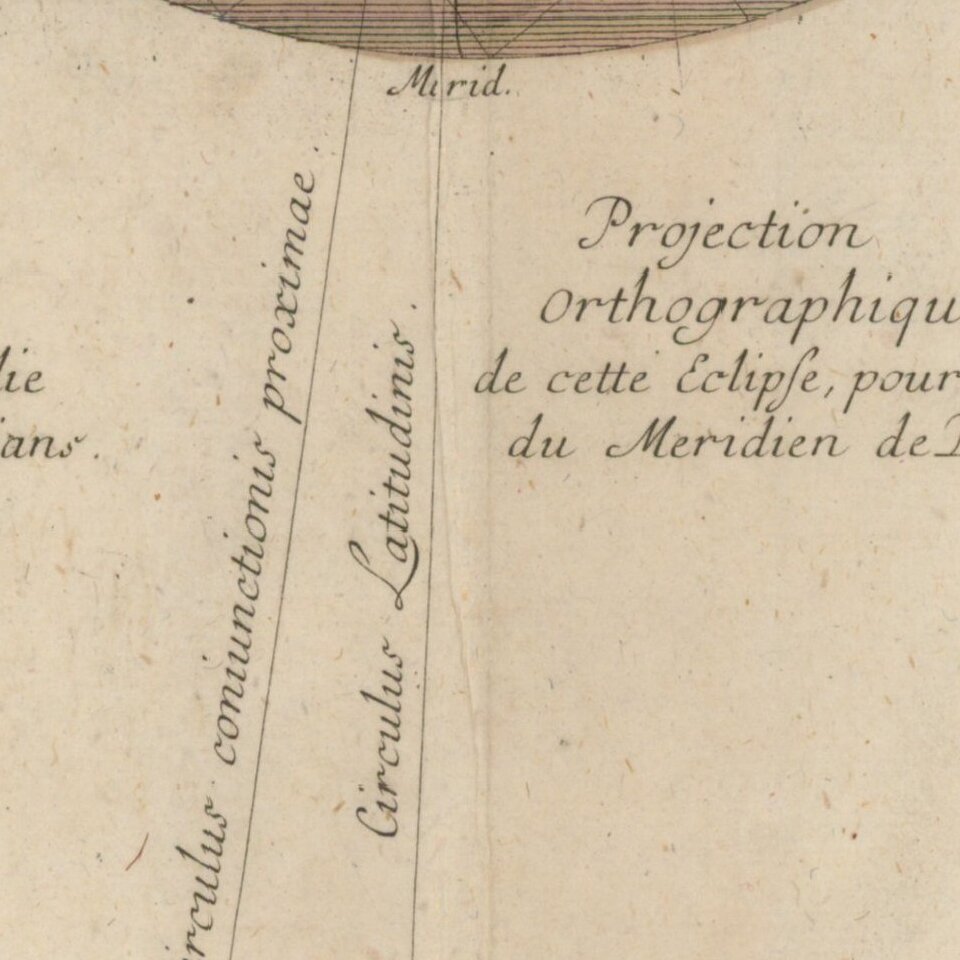 Merid.
Projection
Orthographiqu
de cette Eclipſe, pour
du Meridien de
lie
ians.
Circulus Latitudinis.
irculus coniunctionis proximae.